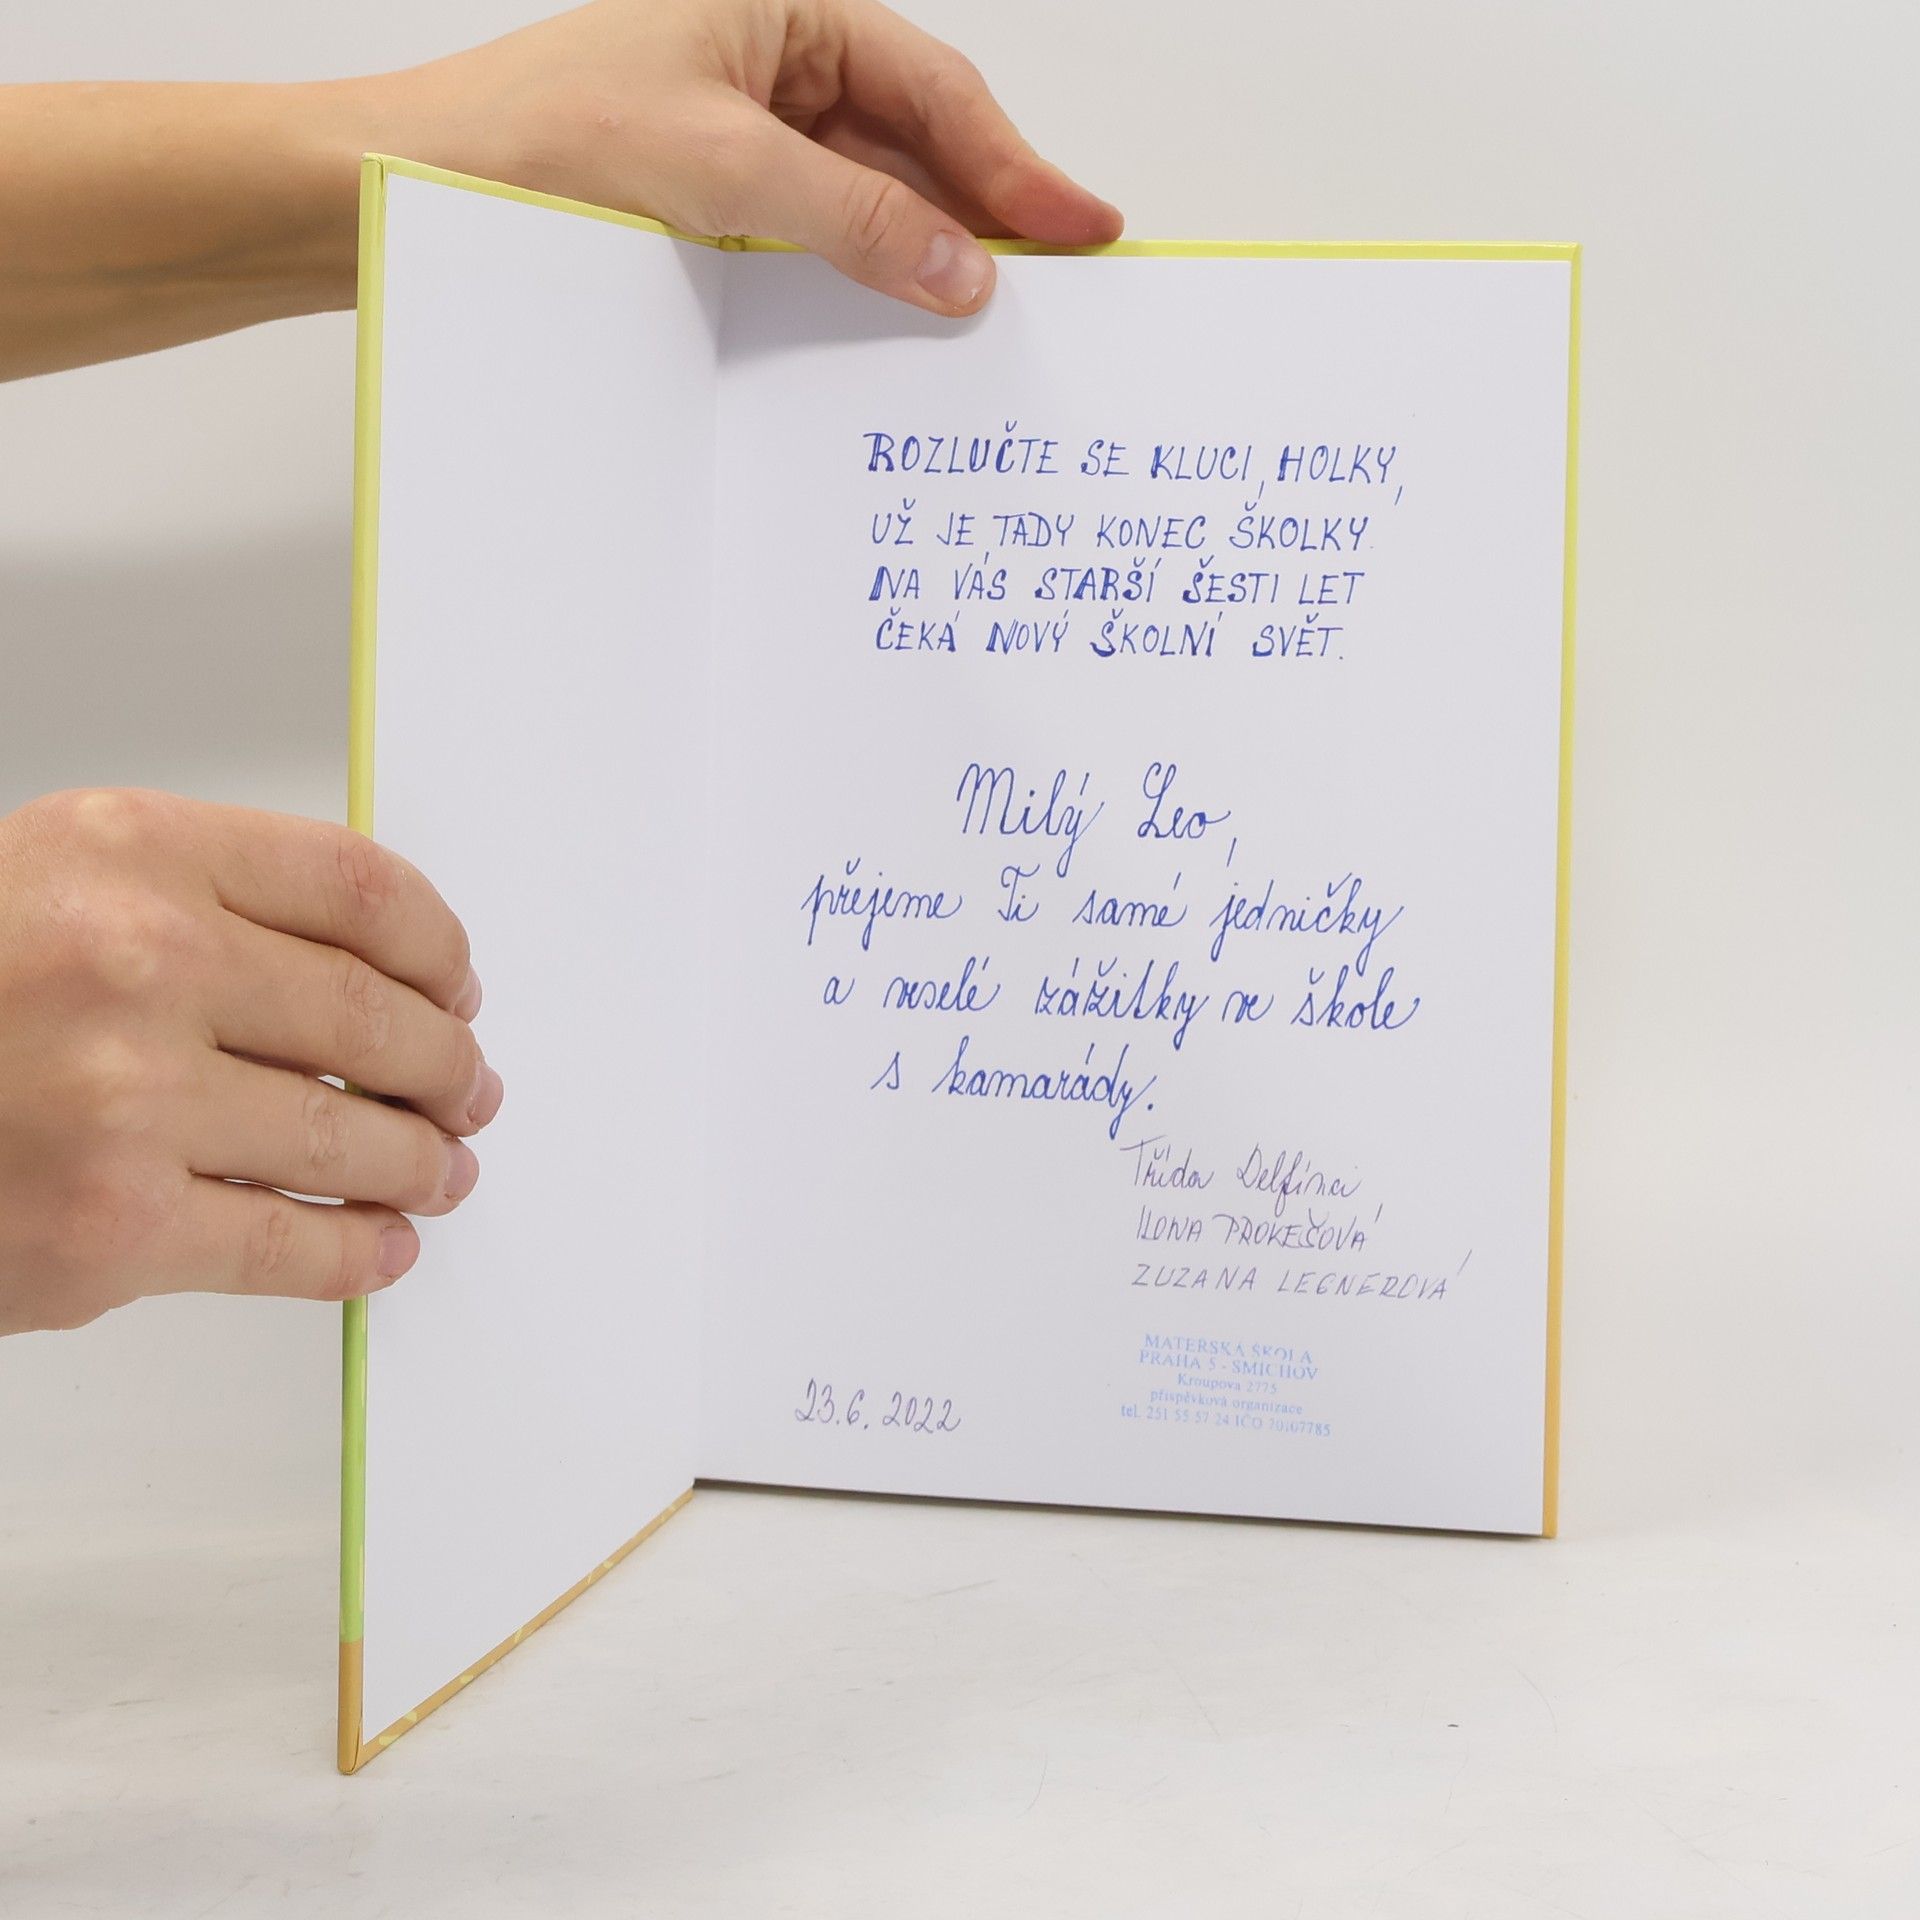 ROZLUČTE SE KLUCI, HOLKY,
UŽ JE TADY KONEC ŠKOLKY.
NA VÁS STARŠÍ ŠESTI LET
ČEKÁ NOVÝ ŠKOLNÍ SVĚT.
Milý Leo,
přejeme Ti samé jedničky
a veselé zážitky ve škole
s kamarády.
Třída Delfínci
ILONA PROKEŠOVÁ
ZUZANA LEGNEROVÁ
MATEŘSKÁ ŠKOLA
PRAHA 5 - SMÍCHOV
Kroupova 2775
příspěvková organizace
tel. 251 55 57 24 IČO
23.6. 2022